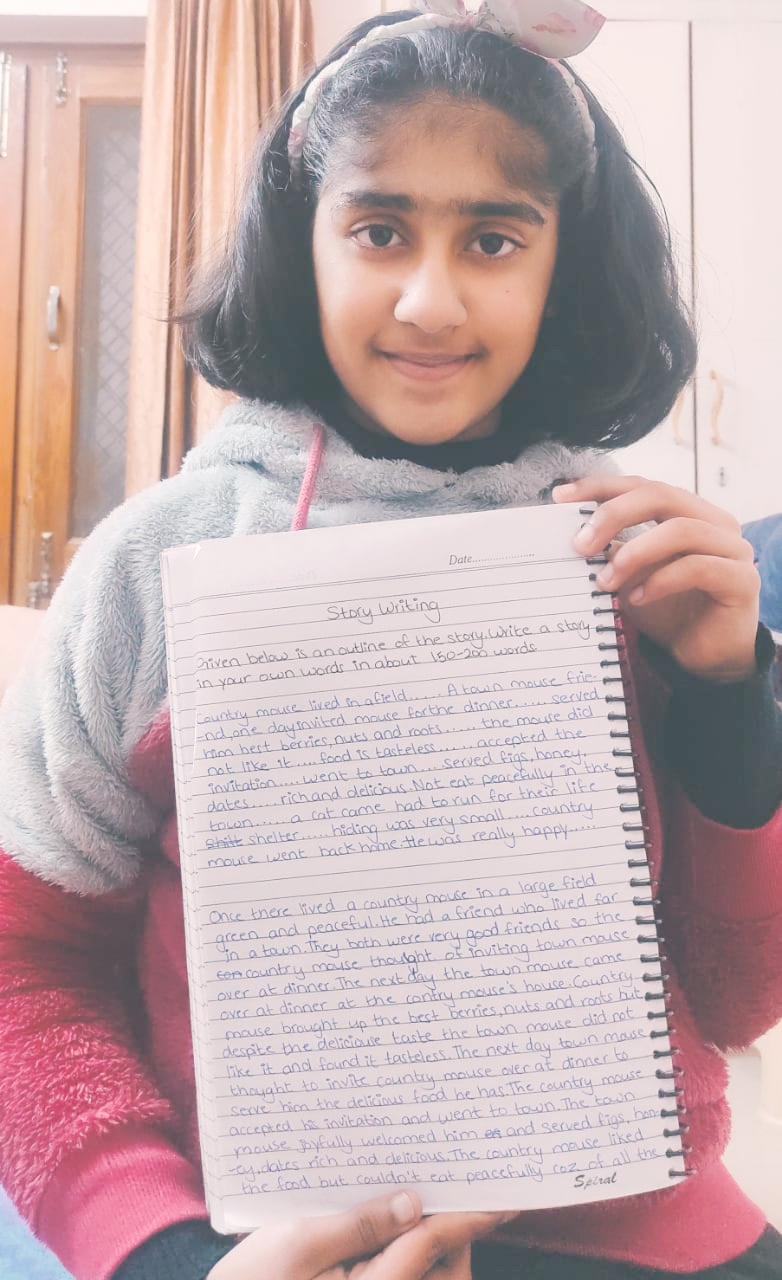 Date....................
Story Writing
Given below is an outline of the story. Write a story
in your own words in about 150-200 words
Country mouse lived in a field...... A town mouse frie-
-nd, one day invited mouse for the dinner...... served
him best berries, nuts and roots...... the mouse did
not like it.... food is tasteless...... accepted the
invitation.... went to town.... served figs, honey,
dates.... rich and delicious. Not eat peacefully in the
town..... a cat came had to run for their life
shelter..... hiding was very small.... Country
mouse went back home. He was really happy.....
Once there lived a country mouse in a large field
green and peaceful. He had a friend who lived far
in a town. They both were very good friends so the
country mouse thought of inviting town mouse
over at dinner. The next day the town mouse came
over at dinner at the contry mouse's house. Country
mouse brought up the best berries, nuts and roots but
despite the deliciouse taste the town mouse did not
like it and found it tasteless. The next day town mouse
thought to invite country mouse over at dinner to
serve him the delicious food he has. The country mouse
accepted his invitation and went to town. The town
mouse joyfully welcomed him and served figs, hon-
-ey, dates rich and delicious. The country mouse liked
the food but couldn't eat peacefully coz of all the
Spiral